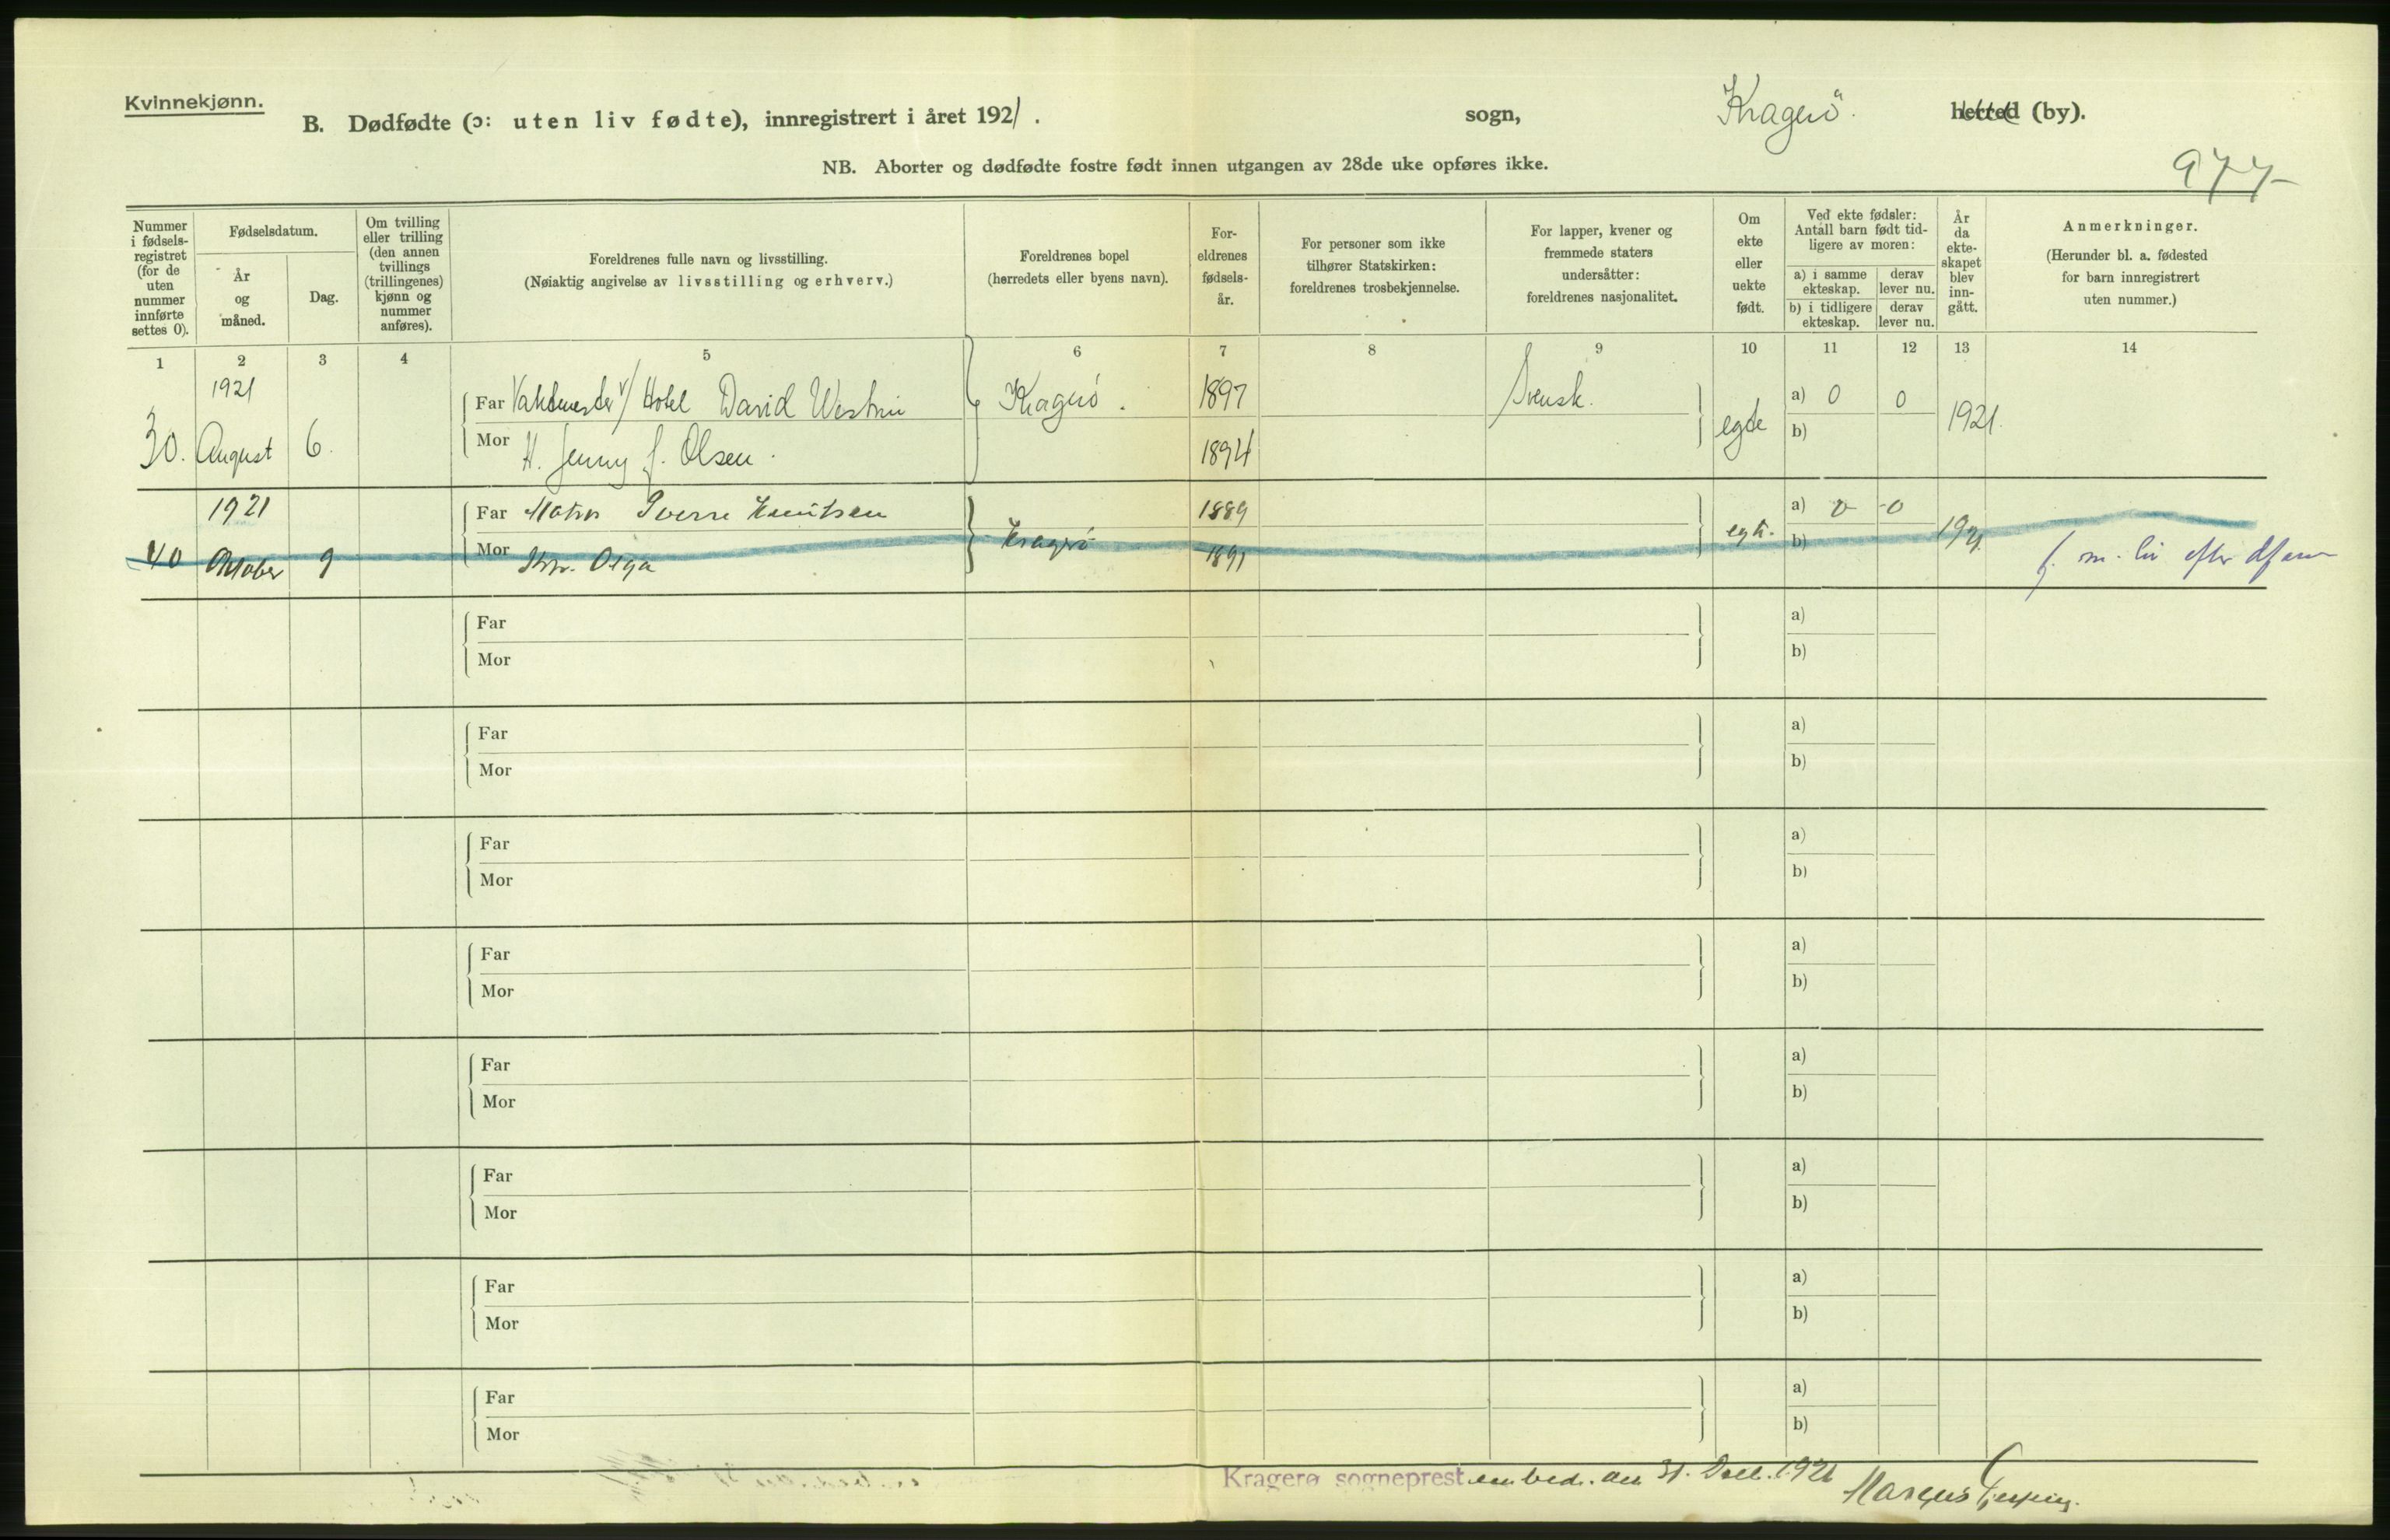 Kvinnekjønn.
B. Dødfødte (ɔ: uten liv fødte), innregistrert i året 1921. sogn, Kragerö. herred (by).
NB. Aborter og dødfødte fostre født innen utgangen av 28de uke opføres ikke.
977
Nummer i fødsels-registret (for de uten nummer innførte settes 0).
Fødselsdatum.
År og måned.
Dag.
Om tvilling eller trilling (den annen tvillings (trillingenes) kjønn og nummer anføres).
Foreldrenes fulle navn og livsstilling.
(Nøiaktig angivelse av livsstilling og erhverv.)
Foreldrenes bopel
(herredets eller byens navn).
For-eldrenes fødsels-år.
For personer som ikke tilhører Statskirken: foreldrenes trosbekjennelse.
For lapper, kvener og fremmede staters undersåtter: foreldrenes nasjonalitet.
Om ekte eller uekte født.
Ved ekte fødsler: Antall barn født tid-ligere av moren:
a) i samme ekteskap.
derav lever nu.
b) i tidligere ekteskap.
derav lever nu.
År da ekte-skapet blev inn-gått.
Anmerkninger.
(Herunder bl. a. fødested for barn innregistrert uten nummer.)
1 2 3 4 5 6 7 8 9 10 11 12 13 14
1921
Far Vaktmester v/ Hotel David Westrin Kragerö. 1897 Svensk. a) 0 0
30. August 6. Mor H. Jenny J. Olsen. 1894 egte b) 1921.
1921
Far Matr Sverre Knutsen 1889 a) 0 0
40 Oktober 9 Mor Olga Kragerö 1891 egte. b) 1921 f. m. liv efter
Far a)
Mor b)
Far a)
Mor b)
Far a)
Mor b)
Far a)
Mor b)
Far a)
Mor b)
Far a)
Mor b)
Far a)
Mor b)
Far a)
Mor b)
Kragerø sogneprestembed. den 31. Dec. 1921
Marcus